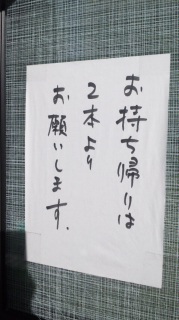 お持ち帰りは
2本より
お願いします.